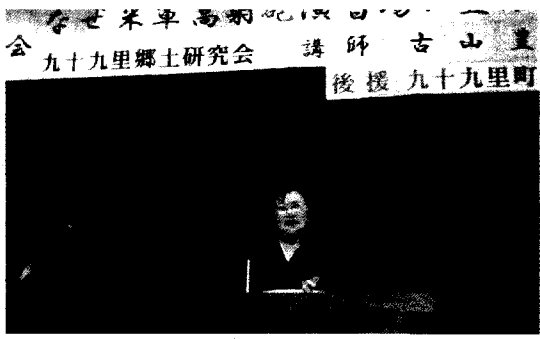 なぜ米軍高射砲演習
会 九十九里郷土研究会 講師 古山豊
後援 九十九里町